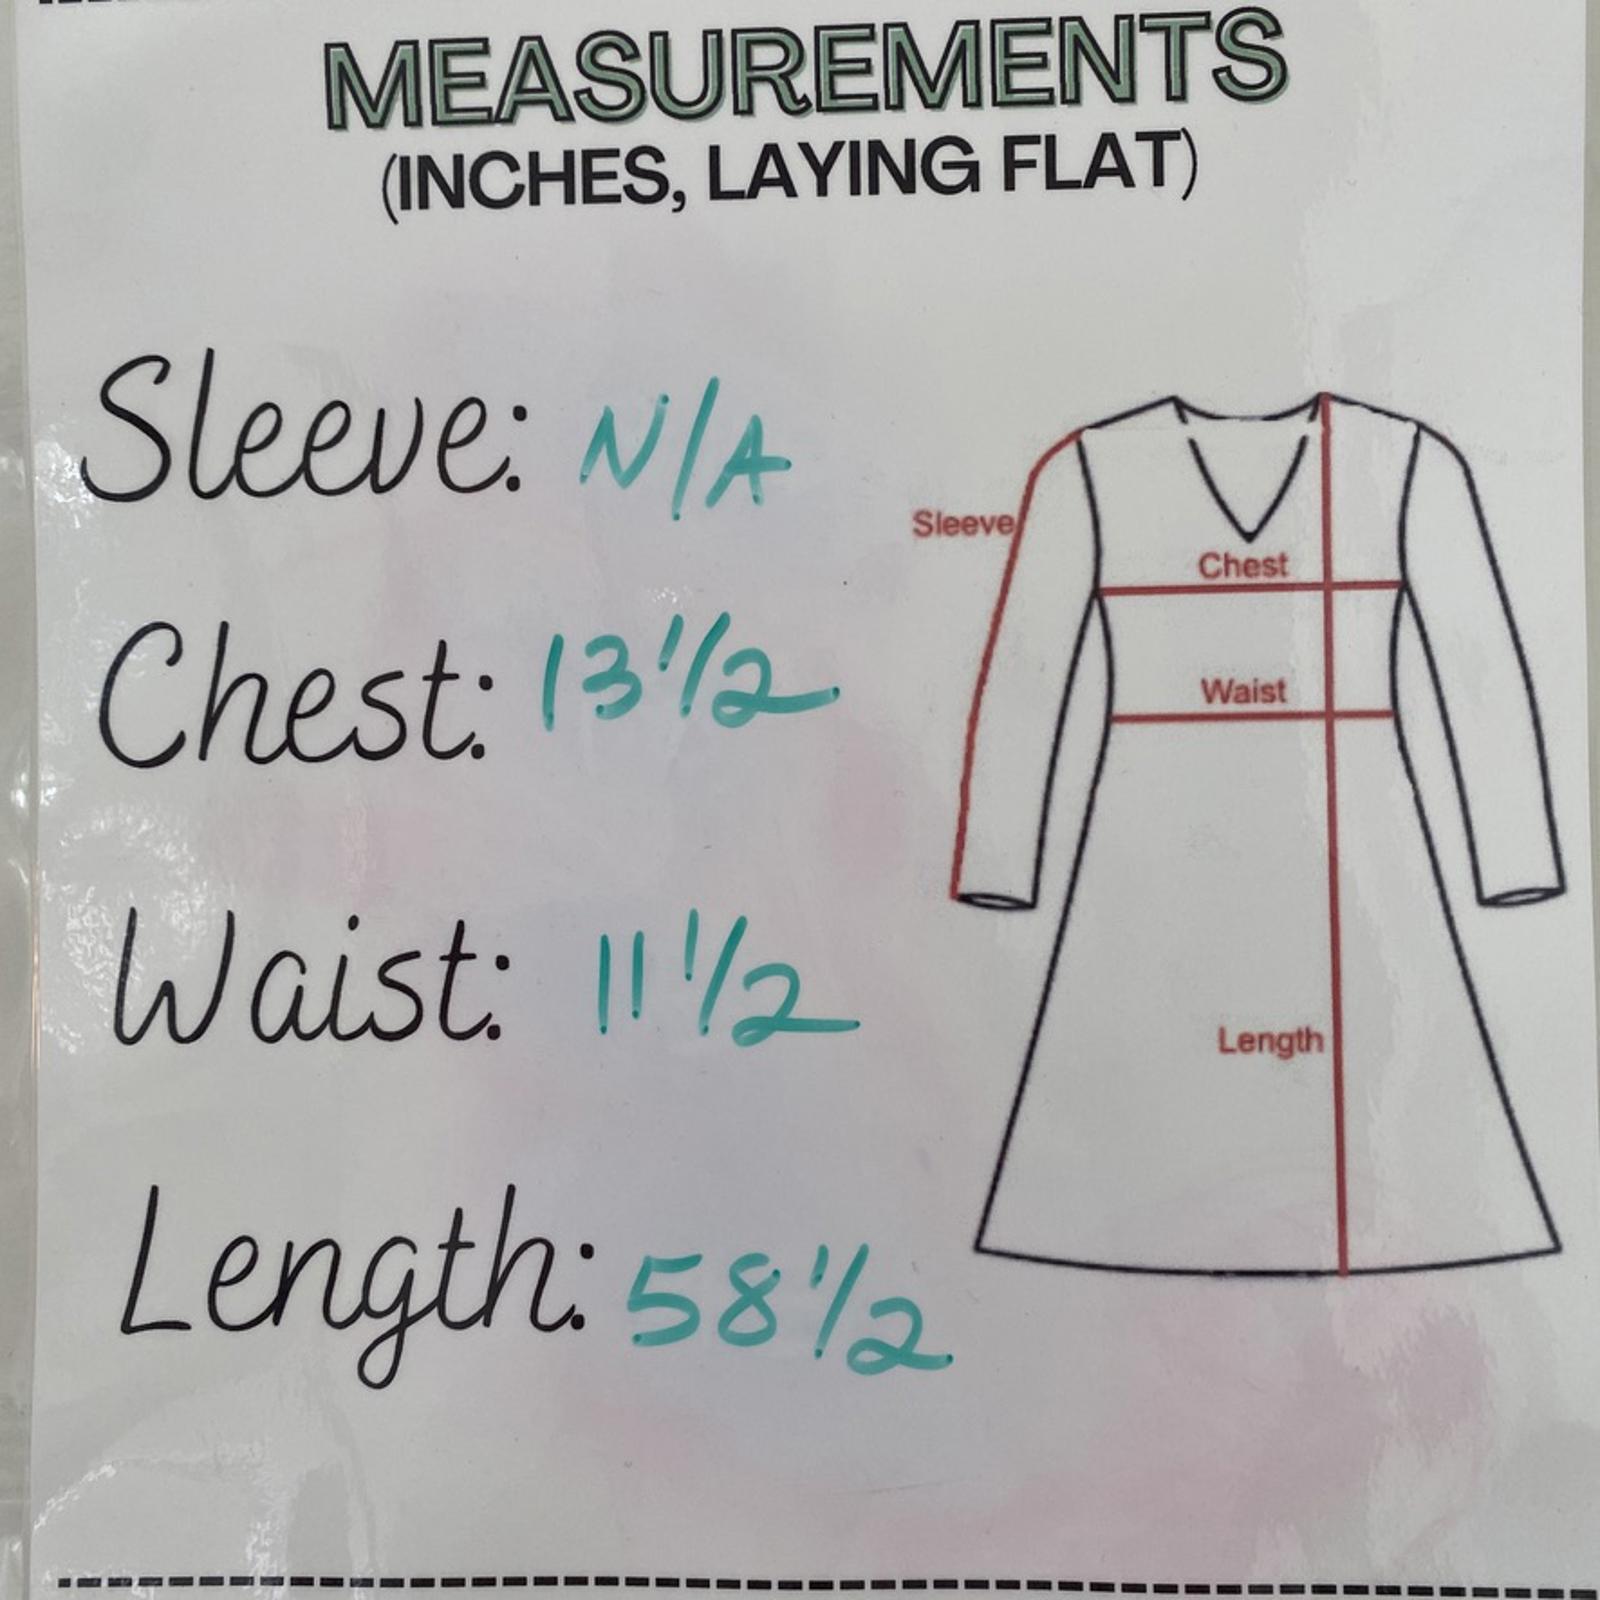 MEASUREMENTS
(INCHES, LAYING FLAT)
Sleeve: N/A
Chest: 13 1/2
Waist: 11 1/2
Length: 58 1/2
Sleeve
Chest
Waist
Length